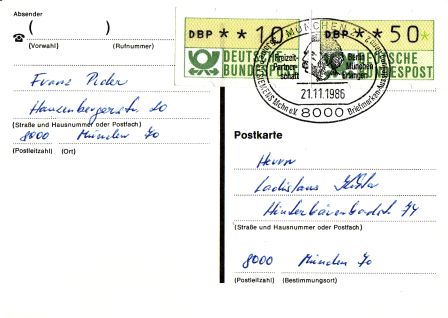 Absender
☎ ( )
(Vorwahl) (Rufnummer)
Franz
20
(Straße und Hausnummer oder Postfach)
8000 München 70
(Postleitzahl) (Ort)
DBP **10
DEUTSCHE
BUNDESPOST
DBP **50*
DEUTSCHE
BUNDESPOST
MÜNCHEN 2
Freizeit-
Partner-
schaft
Berlin
München
Erlangen
21.11.1986
8000
Postkarte
Herrn
Ladislaus
74
(Straße und Hausnummer oder Postfach)
8000 München 70
(Postleitzahl) (Bestimmungsort)